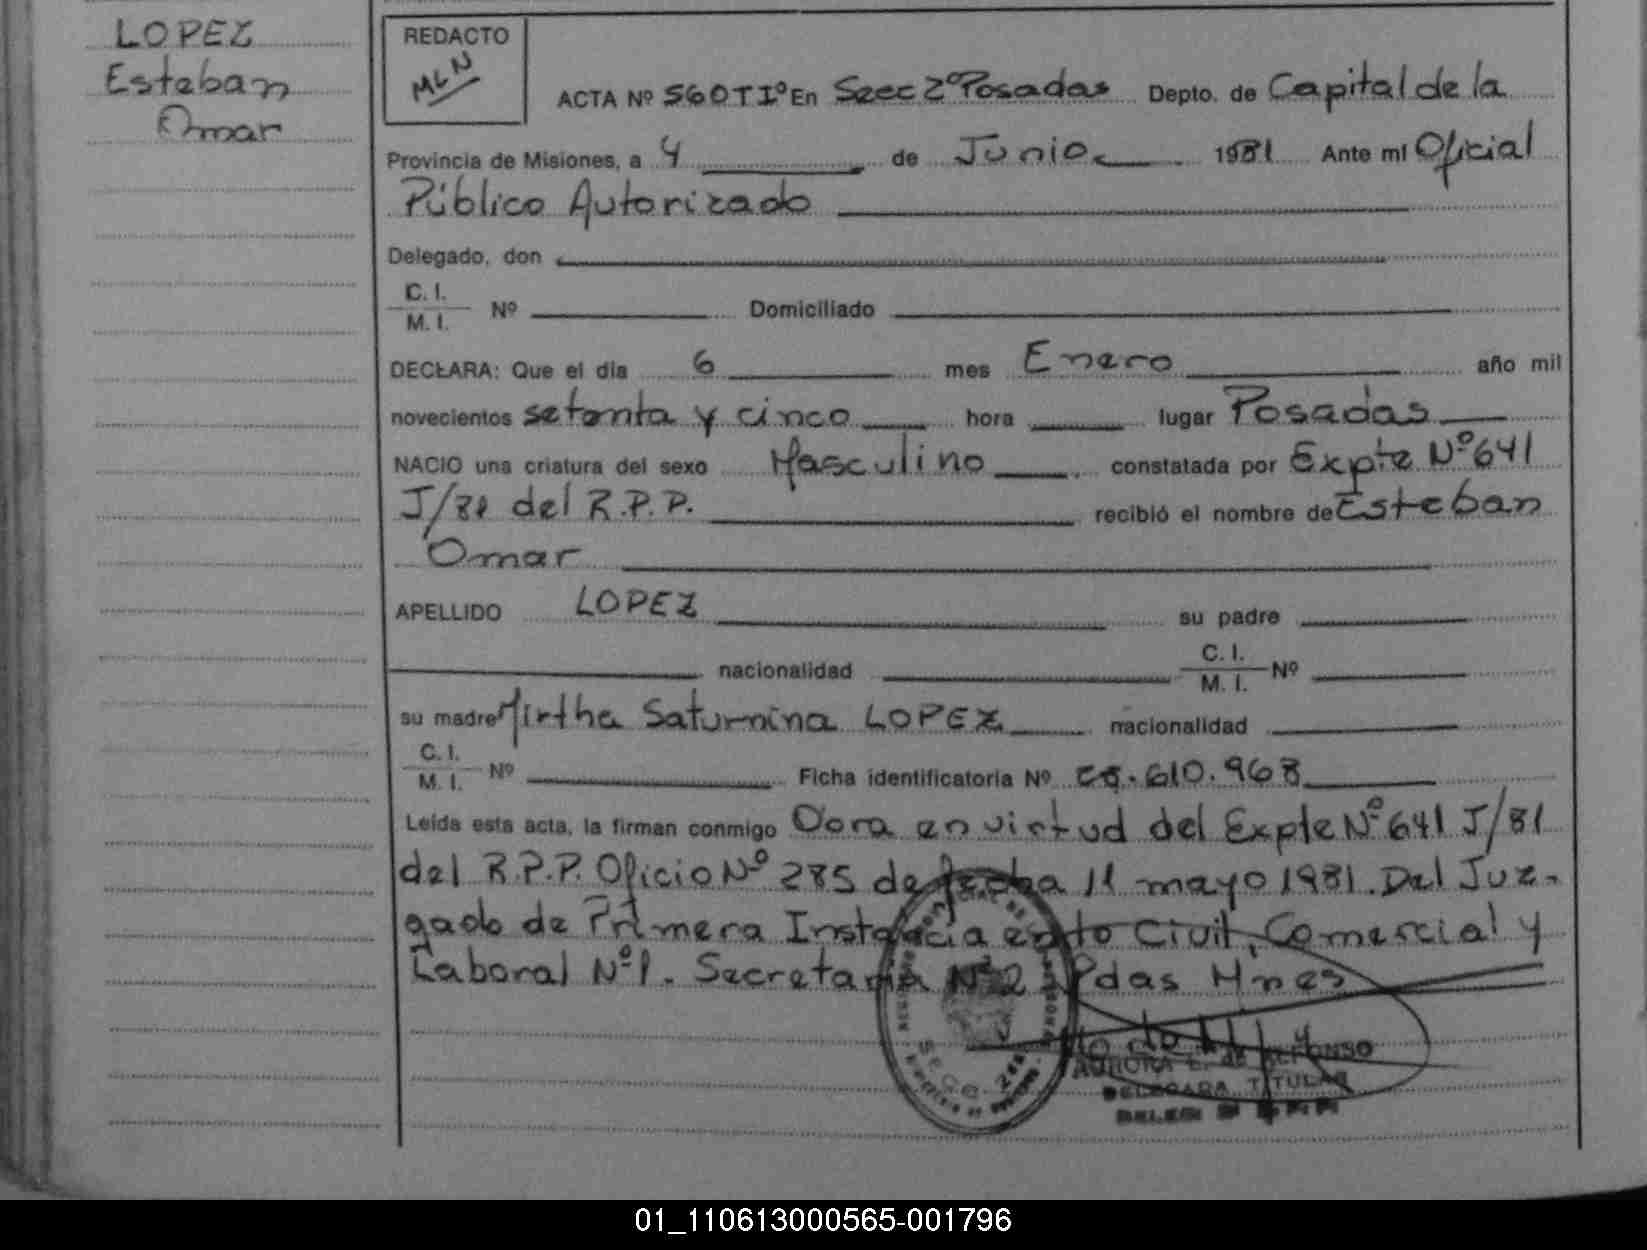 LOPEZ
Esteban
Omar
REDACTO
MLN
ACTA Nº 560 TIº En Secc 2º Posadas Depto. de Capital de la
Provincia de Misiones, a 4 de Junio 1981 Ante mi Oficial
Público Autorizado
Delegado, don
C. I.
M. I. Nº Domiciliado
DECLARA: Que el día 6 mes Enero año mil
novecientos setenta y cinco hora lugar Posadas
NACIO una criatura del sexo Masculino constatada por Expte Nº 641
J/81 del R.P.P. recibió el nombre de Esteban
Omar
APELLIDO LOPEZ su padre
nacionalidad C. I.
M. I. Nº
su madre Mirtha Saturnina LOPEZ nacionalidad
C. I.
M. I. Nº Ficha identificatoria Nº .610.968
Leída esta acta, la firman conmigo en virtud del Expte Nº 641 J/81
del R.P.P. Oficio Nº 285 de fecha 11 mayo 1981. Del Juz-
gado de Primera Instancia en lo Civil, Comercial y
Laboral Nº 1. Secretaria Nº 2 Pdas Mnes
AURORA E. de ALFONSO
DELEGADA TITULAR
01_110613000565-001796